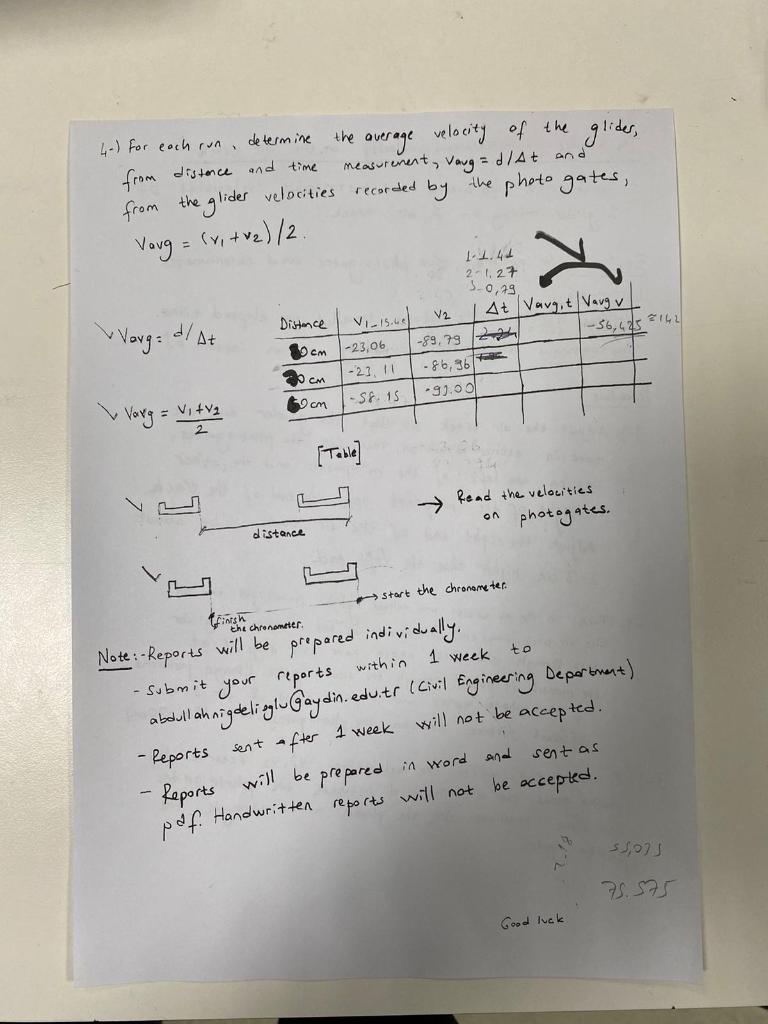 4-) For each run, determine the average velocity of the glider,
from distance and time measurement, Vavg = d/Δt and
from the glider velocities recorded by the photo gates,
Vavg = (v1 + v2)/2.
1-1.41
2-1,27
3-0,79
Distance V1 V2 Δt Vavg,t Vavg v
80 cm -23,06 -89,79 -56,425 ≅142
70 cm -23.11 -86,96
60 cm -58.15 -93.00
Vavg = d/Δt
Vavg = V1+V2
2
[Table]
distance
→ Read the velocities
on photogates.
→ start the chronometer.
finish
the chronometer.
Note:-Reports will be prepared individually.
- Submit your reports within 1 week to
abdullahnigdelioglu@aydin.edu.tr (Civil Engineering Department)
- Reports sent after 1 week will not be accepted.
- Reports will be prepared in word and sent as
pdf. Handwritten reports will not be accepted.
75.575
Good luck